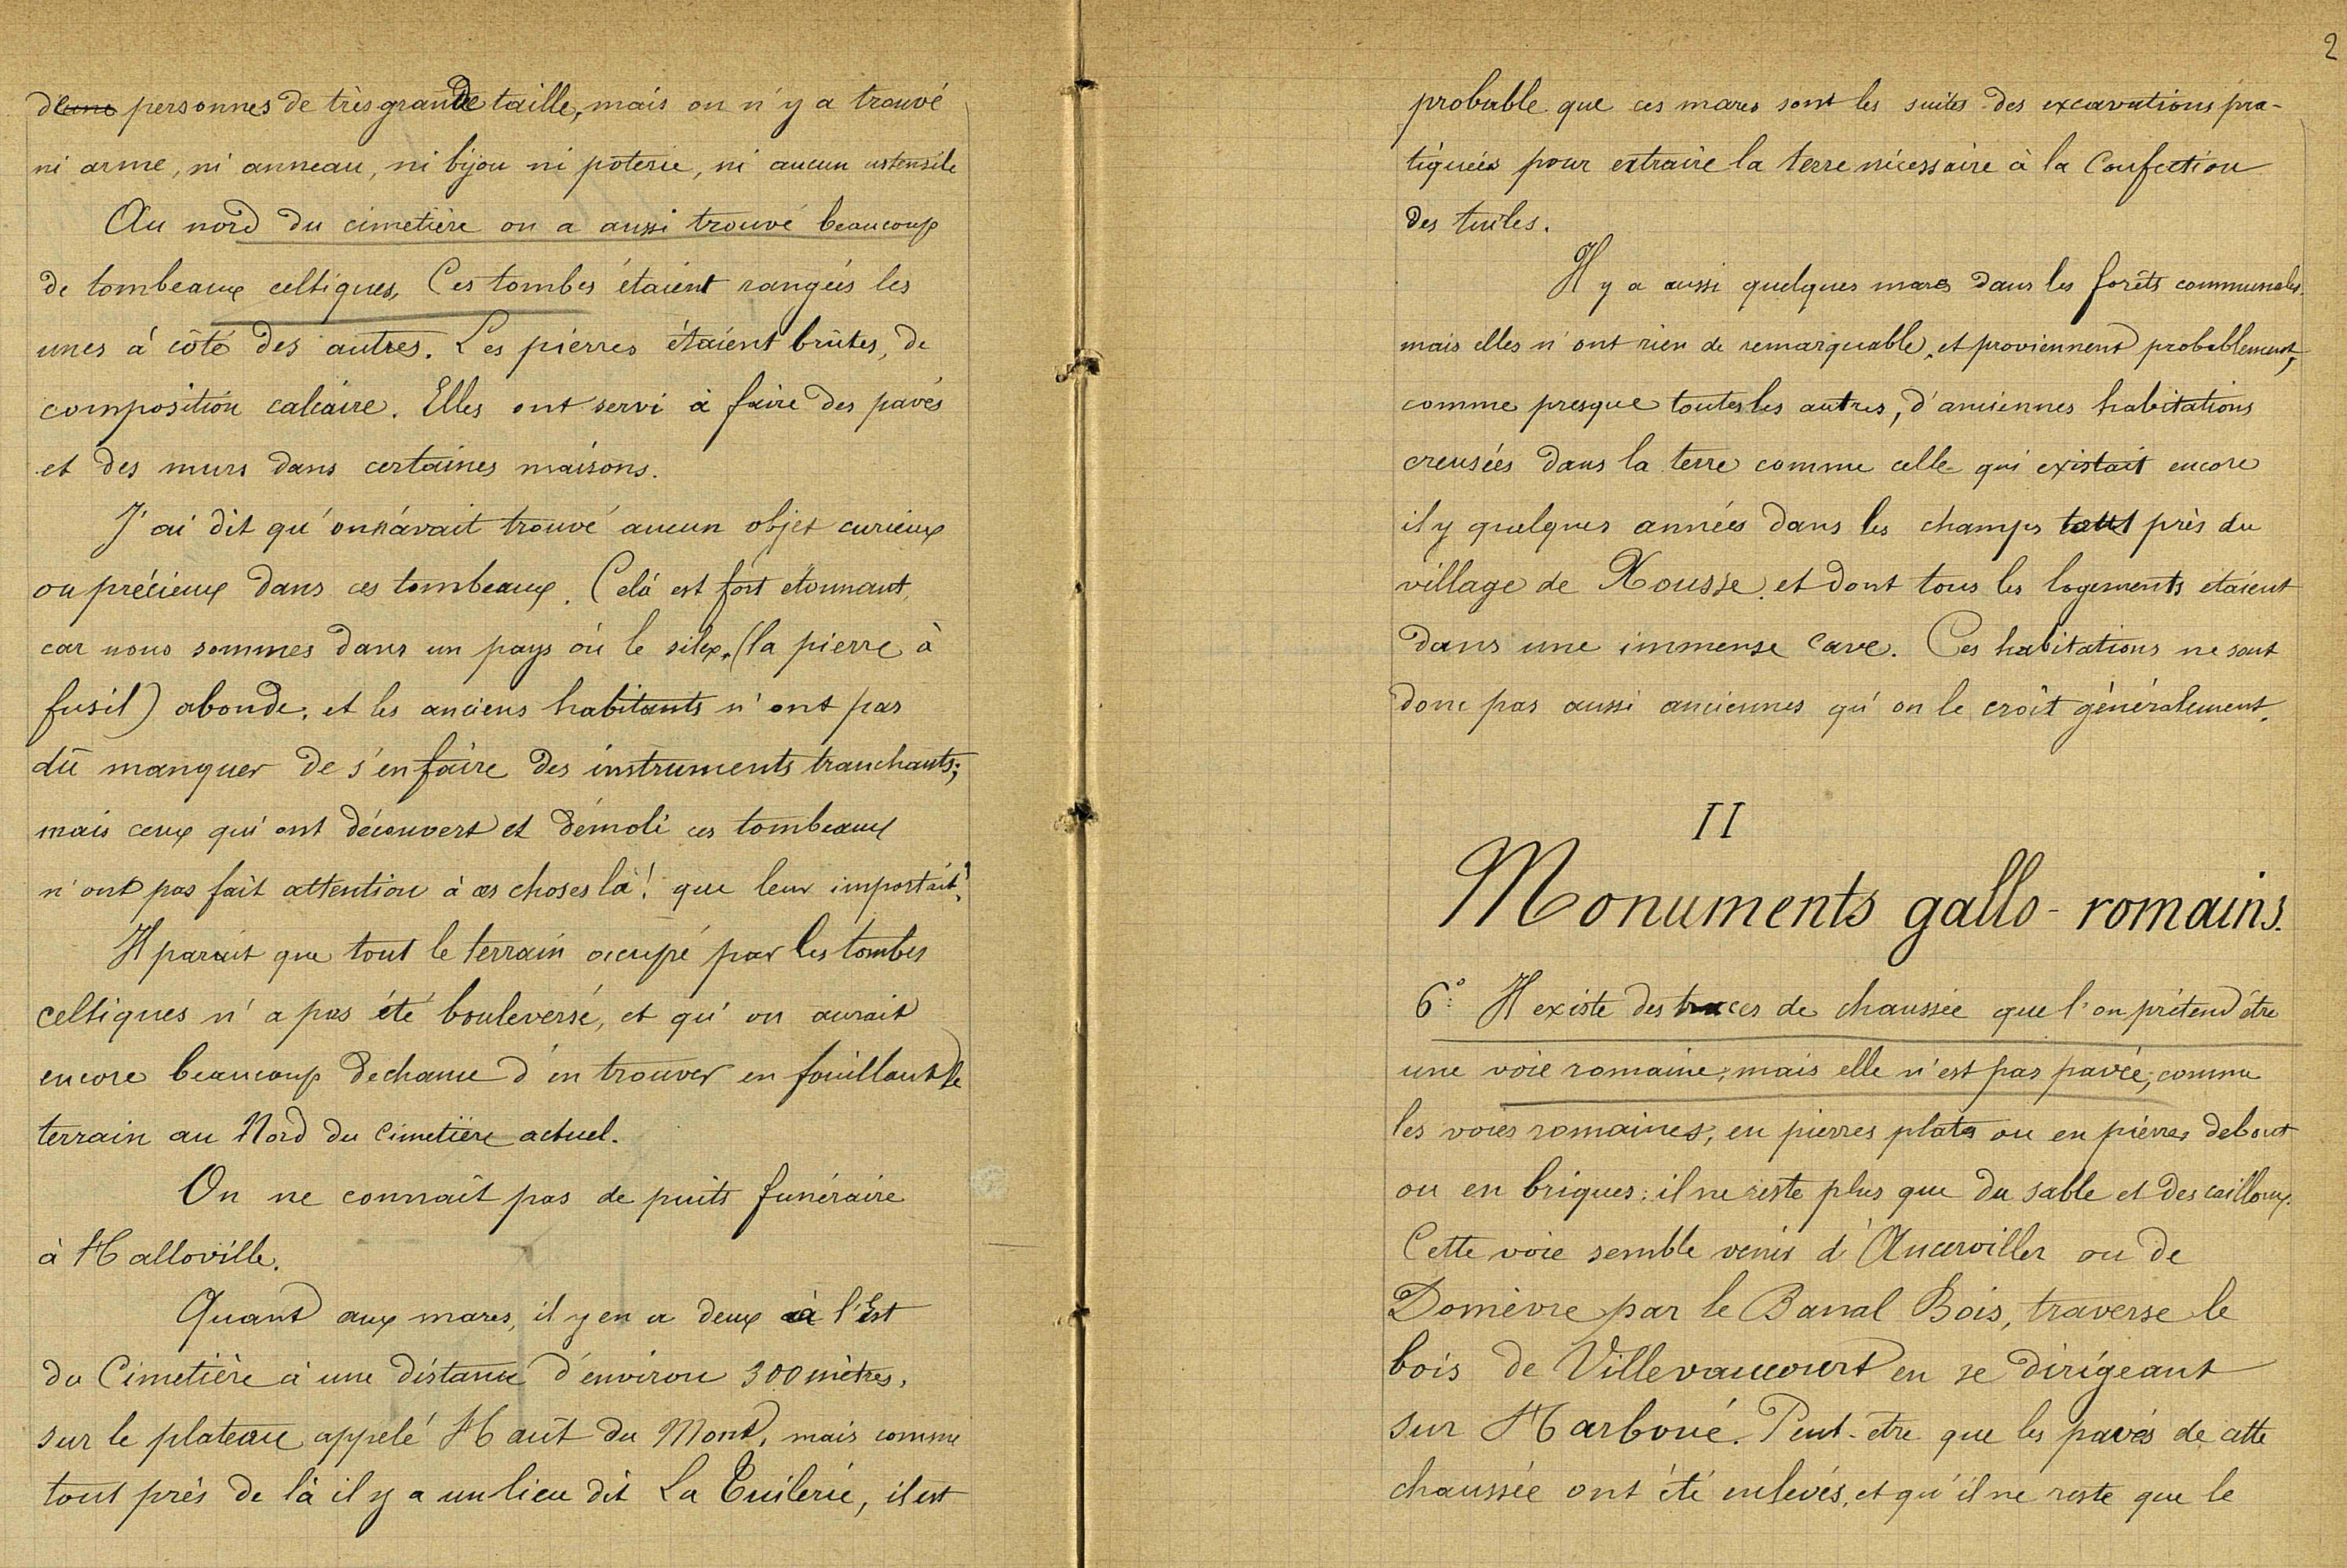 de personnes de très grande taille, mais on n'y a trouvé
ni arme, ni anneau, ni bijou ni poterie, ni aucun ustensile
Au nord du cimetière on a aussi trouvé beaucoup
de tombeaux celtiques. Ces tombes étaient rangées les
unes à côté des autres. Les pierres étaient brûtes, de
composition calcaire. Elles ont servi à faire des pavés
et des murs dans certaines maisons.
J'ai dit qu'on n'avait trouvé aucun objet curieux
ou précieux dans ces tombeaux. Celà est fort étonnant,
car nous sommes dans un pays où le silex, (la pierre à
fusil) abonde, et les anciens habitants n'ont pas
dû manquer de s'en faire des instruments tranchants;
mais ceux qui ont découvert et démoli ces tombeaux
n'ont pas fait attention à ces choses là! que leur importait?
Il parait que tout le terrain occupé par les tombes
celtiques n'a pas été bouleversé, et qu'on aurait
encore beaucoup de chance d'en trouver en fouillant le
terrain au Nord du Cimetière actuel.
On ne connaît pas de puits funéraire
à Halloville.
Quant aux mares, il y en a deux à l'Est
du Cimetière à une distance d'environ 300 mètres,
sur le plateau appelé Haut du Mont, mais comme
tout près de là il y a un lieu dit La Tuilerie, il est
2
probable que ces mares sont les suites des excavations pra-
tiquées pour extraire la terre nécessaire à la Confection
des tuiles.
Il y a aussi quelques mares dans les forêts communales,
mais elles n'ont rien de remarquable, et proviennent probablement,
comme presque toutes les autres, d'anciennes habitations
creusées dans la terre comme celle qui existait encore
il y quelques années dans les champs tout près du
village de Xousse, et dont tous les logements étaient
dans une immense cave. Ces habitations ne sont
donc pas aussi anciennes qu'on le croît généralement.
II
Monuments gallo-romains.
6° Il existe des traces de chaussée que l'on prétend être
une voie romaine; mais elle n'est pas pavée, comme
les voies romaines, en pierres plates ou en pierres debout
ou en briques: il ne reste plus que du sable et des cailloux.
Cette voie semble venir d'Ancerviller ou de
Domèvre par le Banal Bois, traverse le
bois de Villevaucourt en se dirigeant
sur Harboué. Peut-être que les pavés de cette
chaussée ont été enlevés, et qu'il ne reste que le